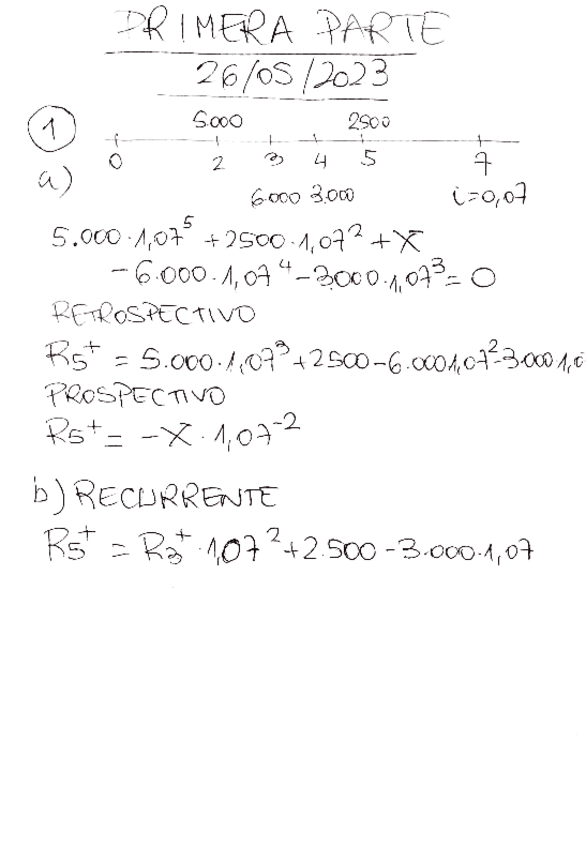 PRIMERA PARTE
26/05/2023
1 5.000 2500
0 2 3 4 5 7
a) 6.000 3.000 i=0,07
5.000·1,07⁵ +2500·1,07² +X
-6.000·1,07⁴ -3.000·1,07³= 0
RETROSPECTIVO
R5⁺ = 5.000·1,07³+2500-6.0001,07²-3.0001,0
PROSPECTIVO
R5⁺= -X·1,07⁻²
b) RECURRENTE
R5⁺ = R3⁺·1,07²+2.500-3.000·1,07